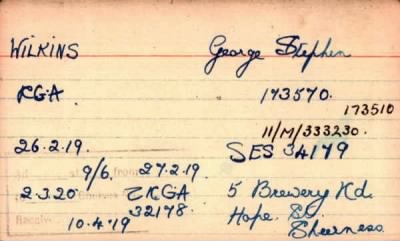 WILKINS George Stephen
RGA 173570.
173510
11/M/333230.
26.2.19. SES 34179
9/6 from 27.2.19.
2.3.20 RGA 5 Brewery Rd.
32178. Hope St.
10.4.19 Sheerness